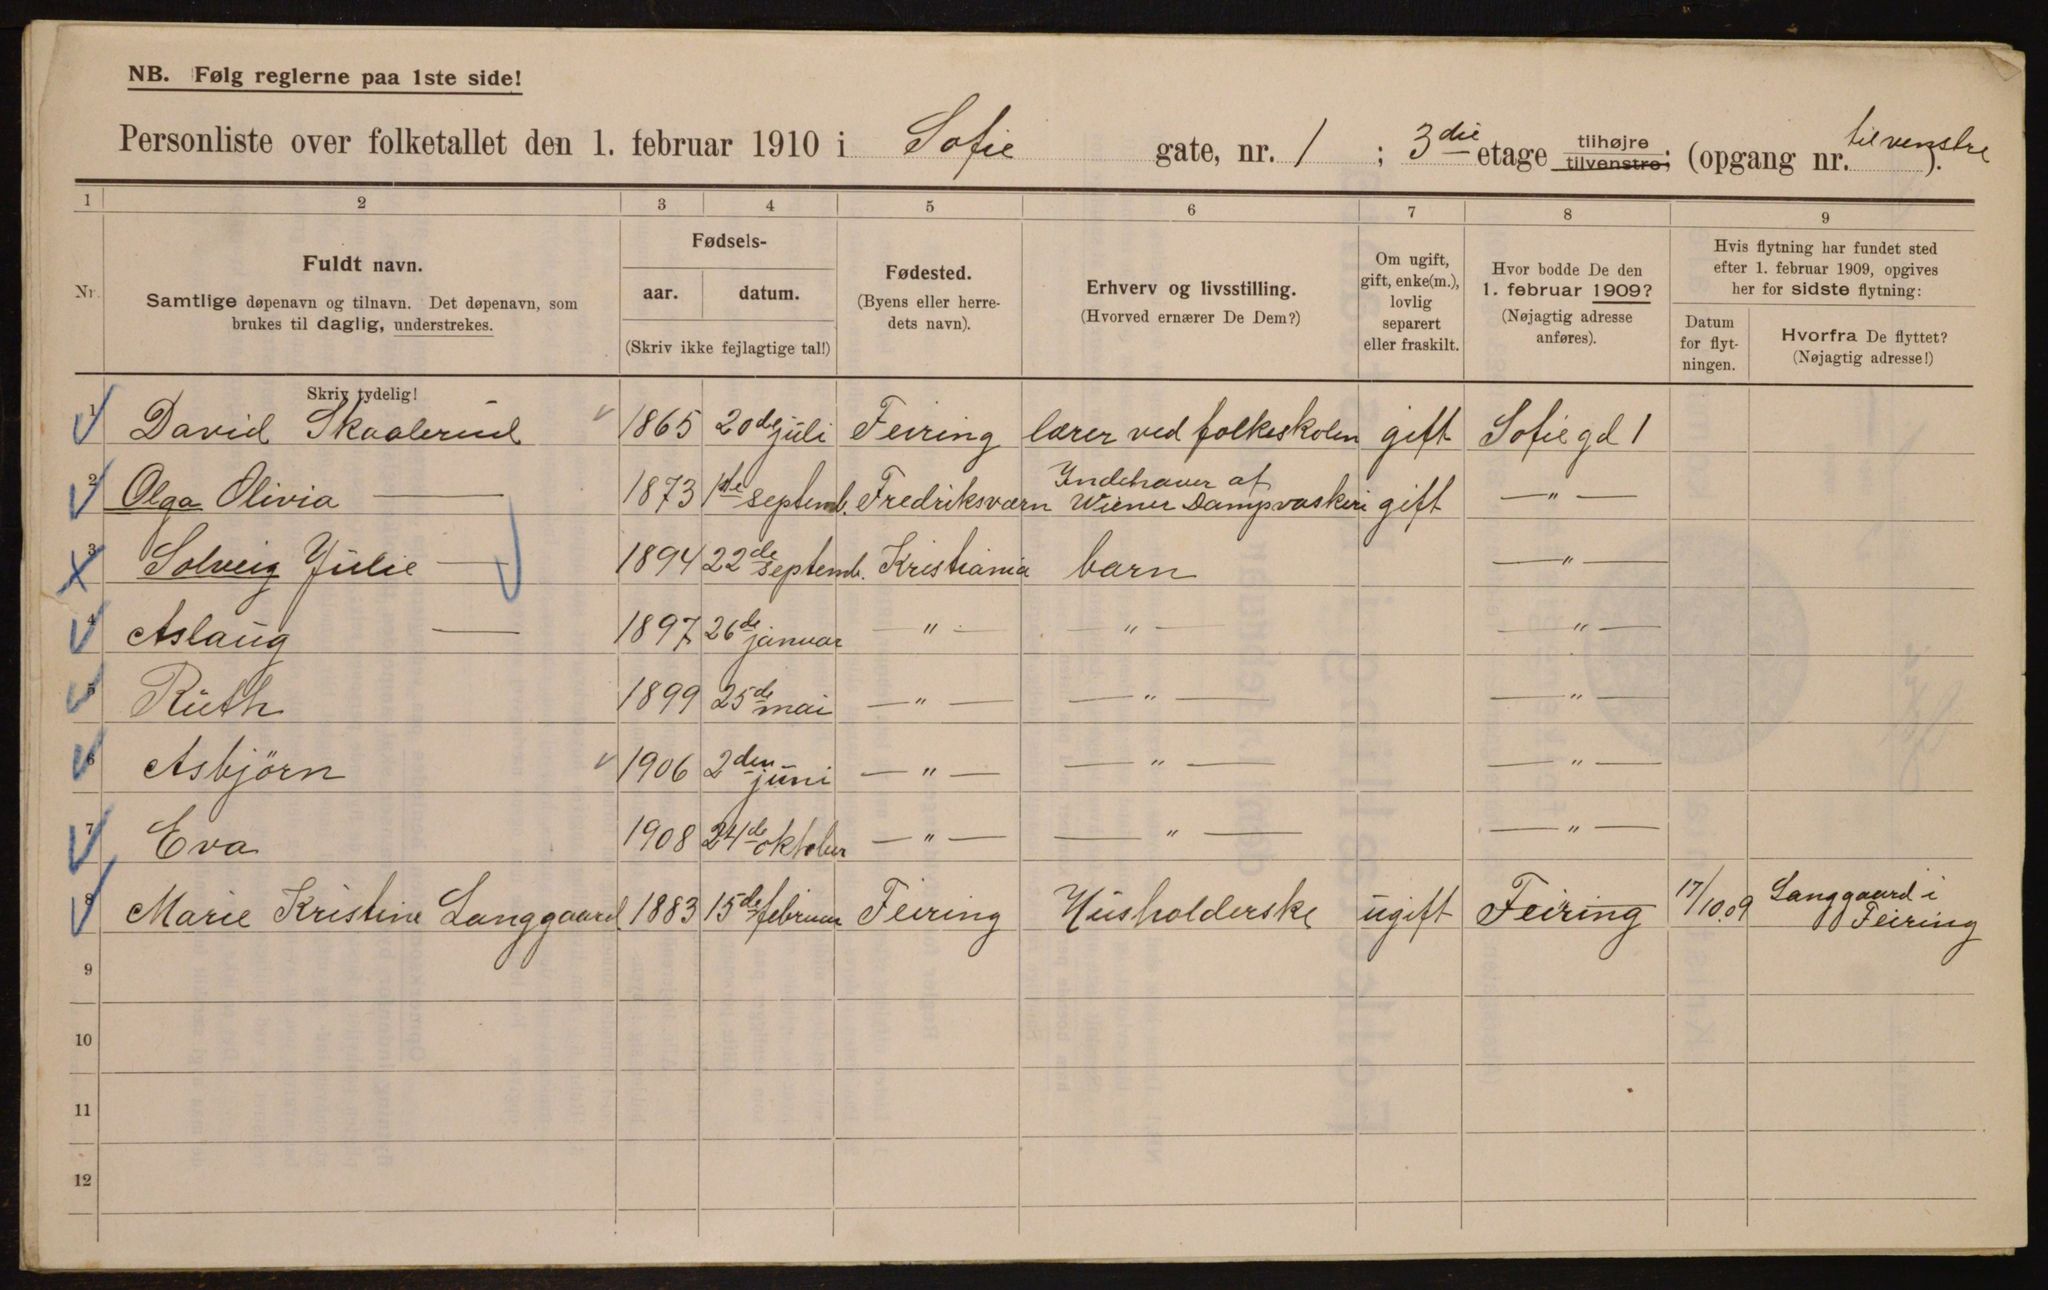 NB. Følg reglerne paa 1ste side!
Personliste over folketallet den 1. februar 1910 i Sofie gate, nr. 1 ; 3die etage tilhøjre tilvenstre; (opgang nr. tilvenstre ).
1 2 3 4 5 6 7 8 9
Nr.
Fuldt navn.
Samtlige døpenavn og tilnavn. Det døpenavn, som
brukes til daglig, understrekes.
Skriv tydelig!
Fødsels-
aar. datum.
(Skriv ikke fejlagtige tal!)
Fødested.
(Byens eller herre-
dets navn).
Erhverv og livsstilling.
(Hvorved ernærer De Dem?)
Om ugift,
gift, enke(m.),
lovlig
separert
eller fraskilt.
Hvor bodde De den
1. februar 1909?
(Nøjagtig adresse
anføres).
Hvis flytning har fundet sted
efter 1. februar 1909, opgives
her for sidste flytning:
Datum
for flyt-
ningen.
Hvorfra De flyttet?
(Nøjagtig adresse!)
1 David Skaalerud 1865 20de juli Feiring lærer ved folkeskolen gift Sofiegd 1
2 Olga Olivia — 1873 1ste septemb. Fredriksværn Indehaver af Wiener Dampvaskeri gift — „ —
3 Solveig Julie — 1894 22de septemb. Kristiania barn — „ —
4 Aslaug — 1897 26de januar — „ — — „ — — „ —
5 Ruth 1899 25de mai — „ — — „ — — „ —
6 Asbjørn 1906 2den juni — „ — — „ — — „ —
7 Eva 1908 24de oktober — „ — — „ — — „ —
8 Marie Kristine Langgaard 1883 15de februar Feiring Husholderske ugift Feiring 17/10.09 Langgaard i Feiring
9
10
11
12